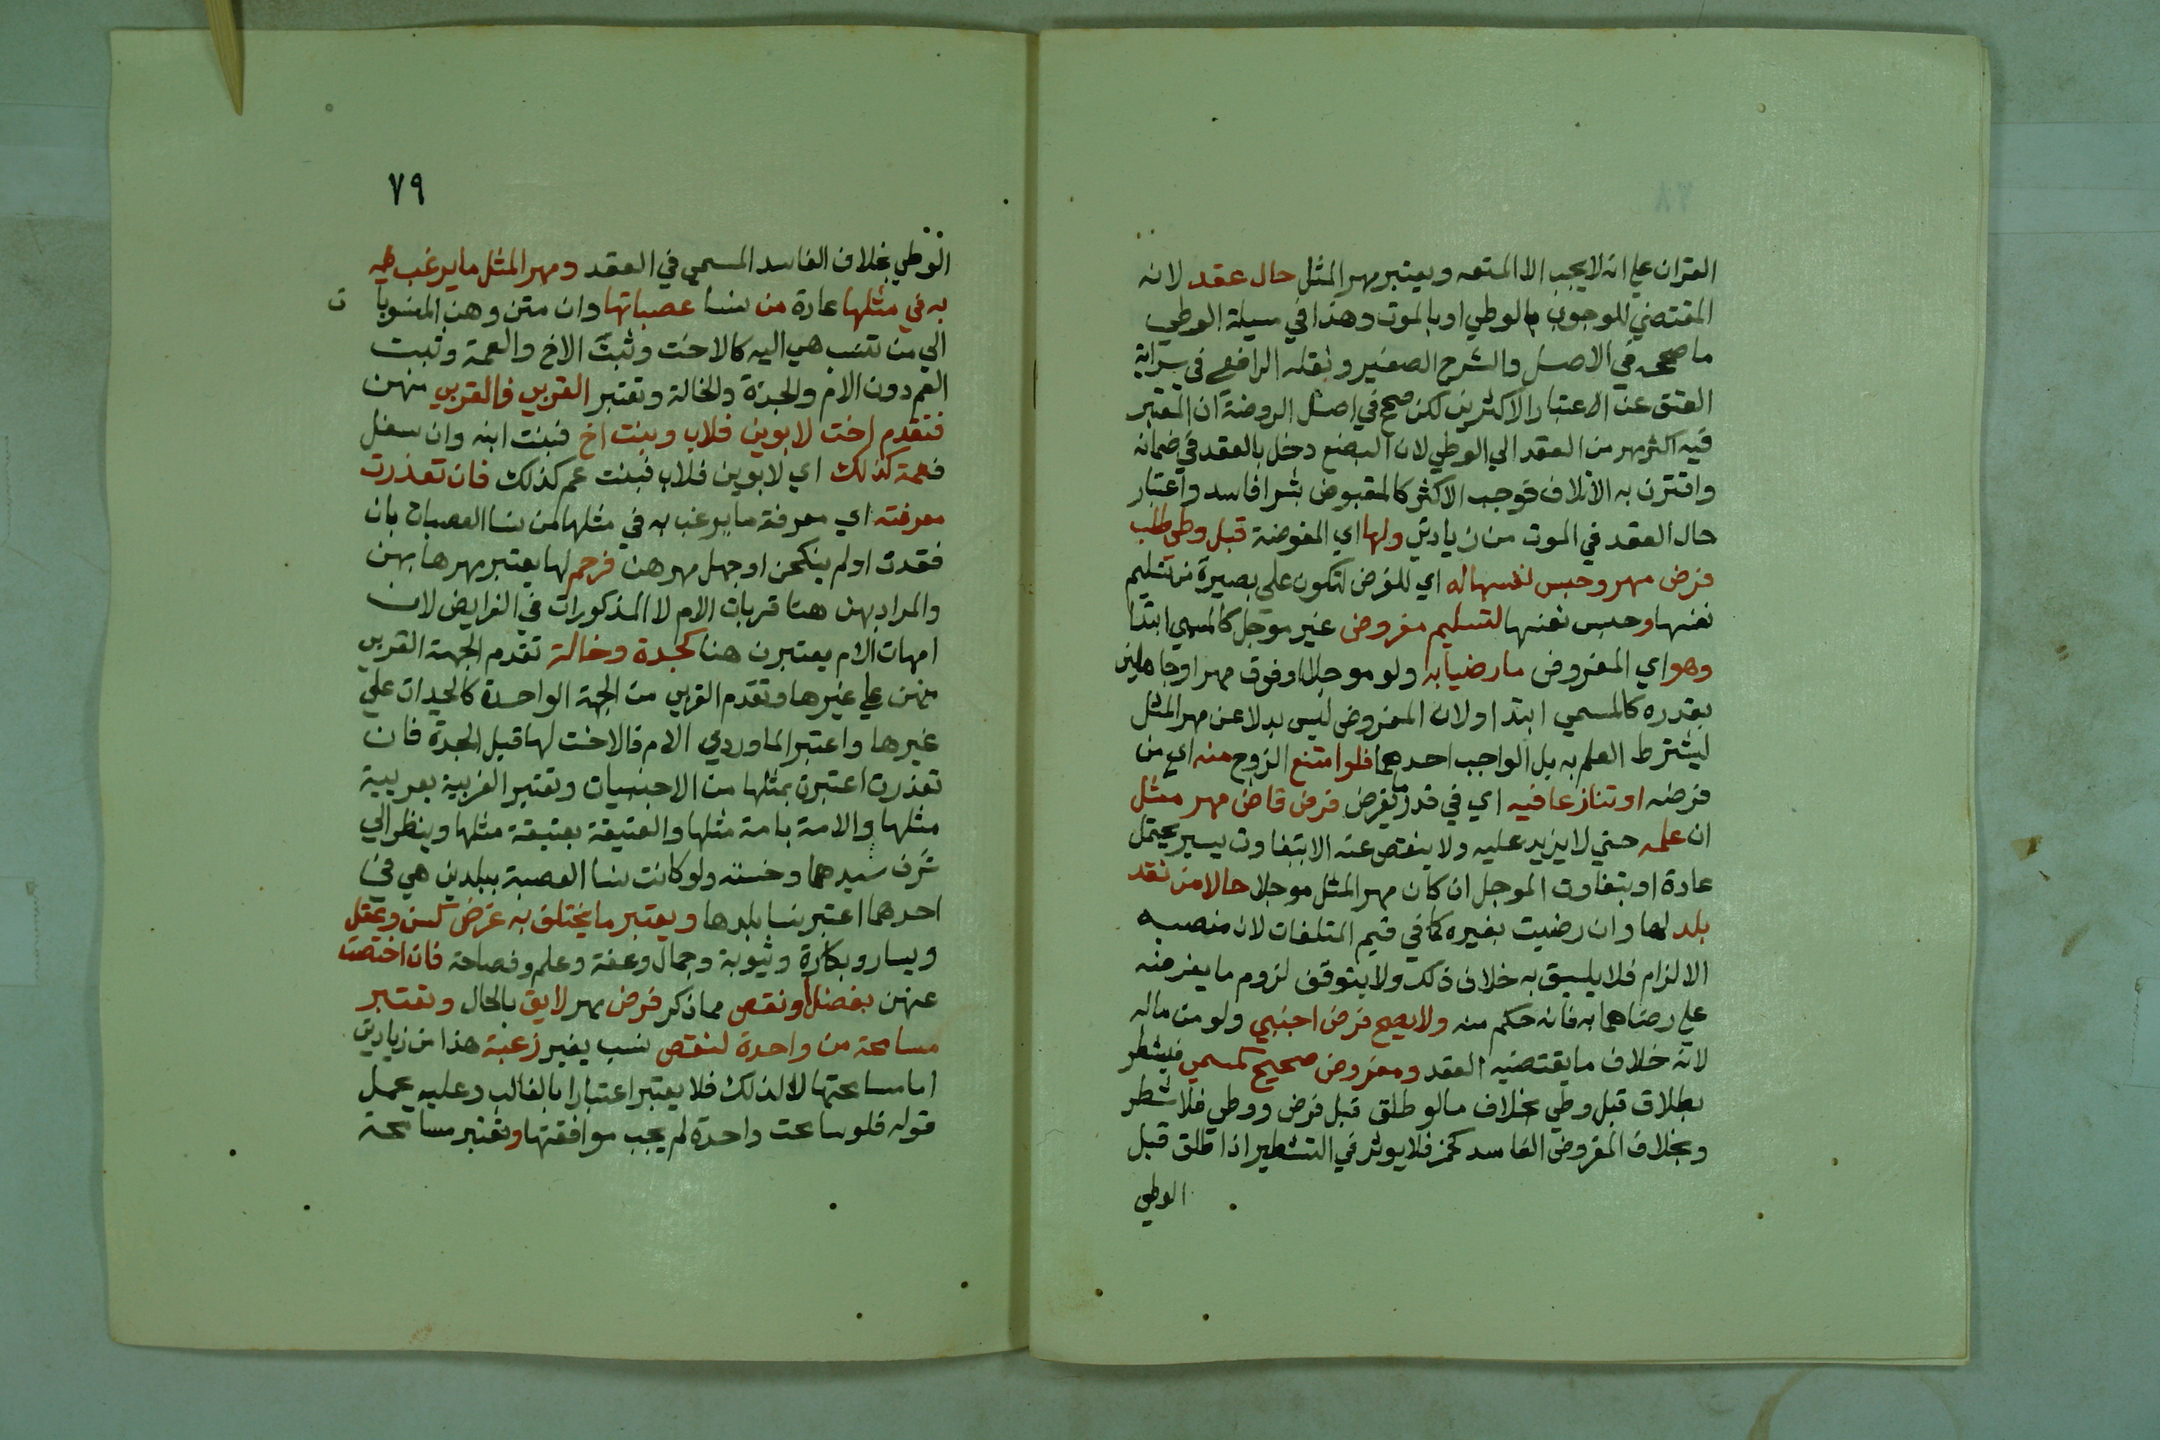 القران علي انه لا يجب الا المتعه ويعتبر مهر المثل حال عقد لانه
المقتضي للوجوب بالوطي او بالموت وهذا في مسيلة الوطي
ما صححه في الاصل والشرح الصغير ونقله الرافعي في سراية
العتق عن الاعتبار الاكثرين لكن صحح في اصل الروضة ان المعتبر
فيه اكثر مهر من العقد الي الوطي لان البضع دخل بالعقد في ضمانه
واقترن به الاتلاف فوجب الاكثر كالمقبوض بشرا فاسد واعتبار
حال العقد في الموت من زيادتي ولها اي المفوضة قبل وطي طلب
فرض مهر وحبس نفسها له اي للفرض لتكون علي بصيرة من تسليم
نفسها وحبس نفسها لتسليم مفروض غير موجل كالمسمي ابتدا
وهو اي المفروض ما رضيا به ولو موجلا او فوق مهر او جاهلين
بقدره كالمسمي ابتدا ولان المفروض ليس بدلا عن مهر المثل
ليشترط العلم به بل الواجب احدهما فلو امتنع الزوج منه اي من
فرضه او تنازعا فيه اي في قدر ما يفرض فرض قاض مهر مثل
ان علمه حتي لا يزيد عليه ولا ينقص عنه الا بتفاوت يسير يحتمل
عادة او بتفاوت الموجل ان كان مهر المثل موجلا حالا من نقد
بلد لها وان رضيت بغيره كما في قيم المتلفات لان منصبه
الالزام فلا يليق به خلاف ذلك ولا يتوقف لزوم ما يفرضه
علي رضاهما به فانه حكم منه ولا يصح فرض اجنبي ولو من ماله
لانه خلاف ما يقتضيه العقد ومفروض صحيح كمسمي فيشطر
بطلاق قبل وطي بخلاف ما لو طلق قبل فرض ووطي فلا شطر
وبخلاف المفروض الفاسد كخمر فلا يوثر في التشطير اذا طلق قبل
الوطي
٧٩
الوطي بخلاف الفاسد المسمي في العقد ومهر المثل ما يرغب طيه
به في مثلها عادة من نسا عصباتها وان متن وهن المنسوبا ت
الي من تنسب هي اليه كالاخت وبنت الاخ والعمة وبنت
العم دون الام والجدة والخالة وتعتبر القربي فالقربي منهن
فتقدم اخت لابوين فلاب وبنت اخ فبنت ابنه وان سفل
فعمة كذلك اي لابوين فلاب فبنت عم كذلك فان تعذرت
معرفته اي معرفة ما يرغب به في مثلها من نسا العصبات بان
فقدت او لم ينكحن او جهل مهرهن فرحم لها يعتبر مهرها بهن
والمراد بهن هنا قربات الام لا المذكورات في الفرايض لان
امهات الام يعتبرن هنا كجدة وخالة تقدم الجهة القربي
منهن علي غيرها وتقدم القربي من الجهة الواحدة كالجدات علي
غيرها واعتبر الماوردي الام فالاخت لها قبل الجدة فان
تعذرت اعتبرت بمثلها من الاجنبيات وتعتبر العربية بعربية
مثلها والامة بامة مثلها والعتيقة بعتيقة مثلها وينظر الي
شرف سيدهما وخسته ولو كانت نسا العصبة ببلدين هي في
احدهما اعتبر نسا بلدها ويعتبر ما يختلف به غرض كسن وعقل
ويسار وبكارة وثيوبة وجمال وعفة وعلم وفصاحة فان اختصت
عنهن بفضل او نقص مما ذكر فرض مهر لايق بالحال وتعتبر
مسامحة من واحدة لنقص نسب يفتر رغبة هذا من زيادتي
اما مسامحتها لا لذلك فلا يعتبر اعتبارا بالغالب وعليه يحمل
قوله فلو سامحت واحدة لم يجب موافقتها وتعتبر مسامحة